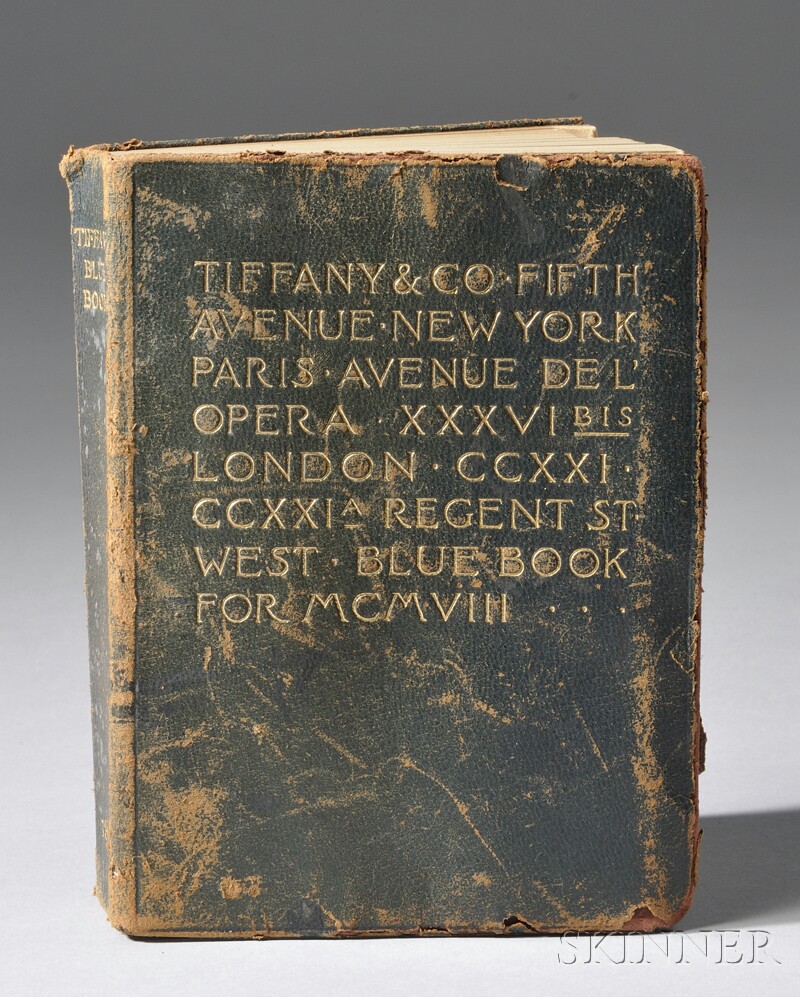 TIFFANY & CO · FIFTH
AVENUE · NEW YORK
PARIS · AVENUE DE L'
OPERA · XXXVI BIS
LONDON · CCXXI ·
CCXXI A REGENT ST·
WEST · BLUE BOOK
FOR MCMVIII · · ·
TIFFANY
BLUE
BOOK
SKINNER